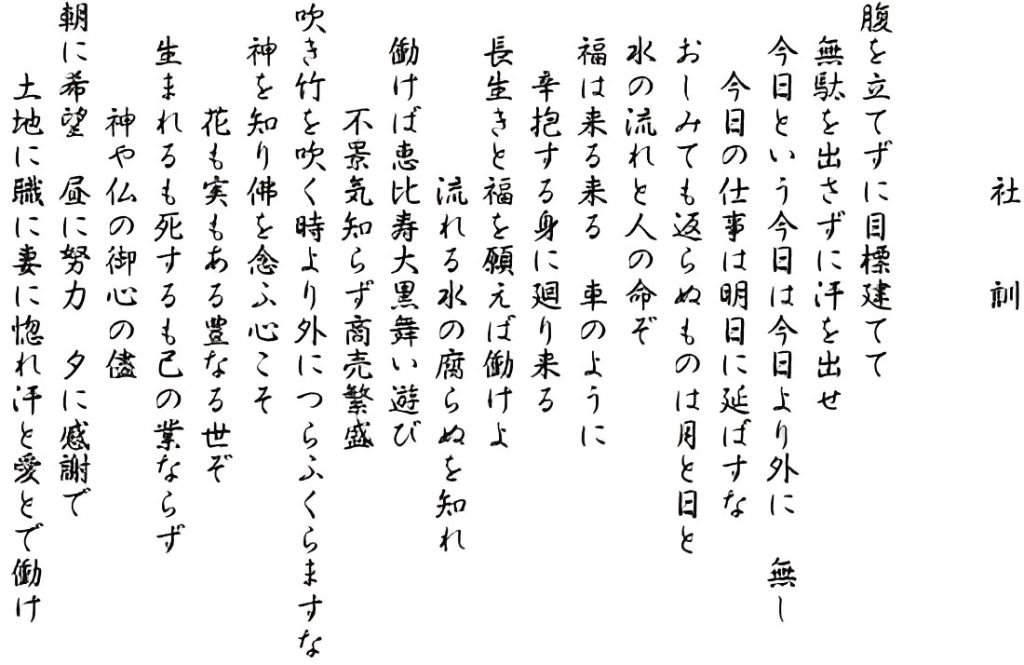 社 訓
腹を立てずに目標建てて
無駄を出さずに汗を出せ
今日という今日は今日より外に 無し
今日の仕事は明日に延ばすな
おしみても返らぬものは月と日と
水の流れと人の命ぞ
福は来る来る 車のように
辛抱する身に廻り来る
長生きと福を願えば働けよ
流れる水の腐らぬを知れ
働けば恵比寿大黒舞い遊び
不景気知らず商売繁盛
吹き竹を吹く時より外につらふくらますな
神を知り佛を念ふ心こそ
花も実もある豊なる世ぞ
生まれるも死するも己の業ならず
神や仏の御心の儘
朝に希望 昼に努力 夕に感謝で
土地に職に妻に惚れ汗と愛とで働け